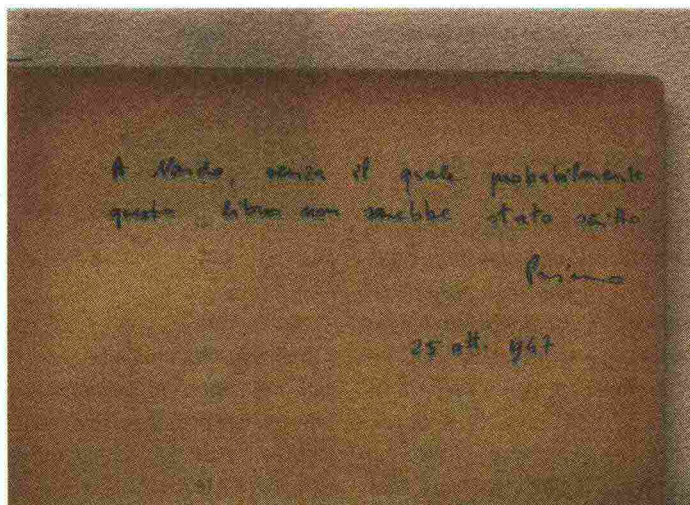 A Nardo, senza il quale probabilmente
questo libro non sarebbe stato scritto
Primo
25 ott. 1947